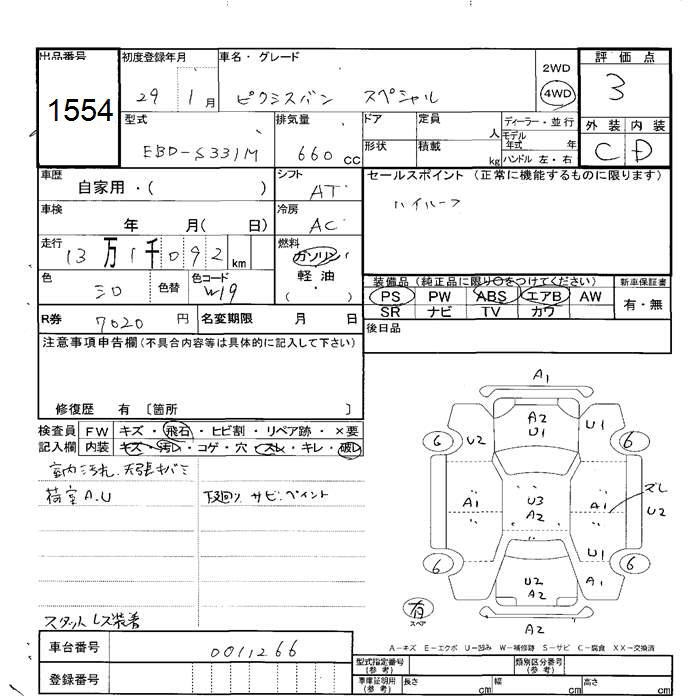 出品番号 初度登録年月 車名・グレード 2WD 評価点
1554 29 1月 ピクシスバン スペシャル 4WD 3
型式 排気量 ドア 定員 人 ディーラー・並行 外装 内装
EBD-S331M 660cc 形状 積載 kg モデル年式 年 C D
ハンドル 左・右
車歴 自家用・( ) シフト AT セールスポイント (正常に機能するものに限ります)
車検 年 月( 日) 冷房 AC ハイルーフ
走行 13万1千092km 燃料 ガソリン
軽油
( )
色 シロ 色替 色コード W19 装備品(純正品に限り○をつけてください) 新車保証書
PS PW ABS エアB AW 有・無
SR ナビ TV カワ
R券 7020円 名変期限 月 日 後日品
注意事項申告欄(不具合内容等は具体的に記入して下さい)
修復歴 有 〔箇所
検査員 FW キズ・飛石・ヒビ割・リペア跡・×要
記入欄 内装 キズ・汚レ・コゲ・穴・スレ・キレ・破レ
室内汚れ、天張キバミ
荷室A.U 下廻り サビ.ペイント
スタットレス装着
A1
A2
U1 U1
6 U2 6
ズレ
A1 U3 A1 U2
A2
U1
6 U2 A1 6
A2
有
スペア A2
A-キズ E-エクボ U-凹み W-補修跡 S-サビ C-腐食 XX-交換済
車台番号 0011266
登録番号
型式指定番号(参考) 類別区分番号(参考)
車庫証明用(参考) 長さ cm 幅 cm 高さ cm